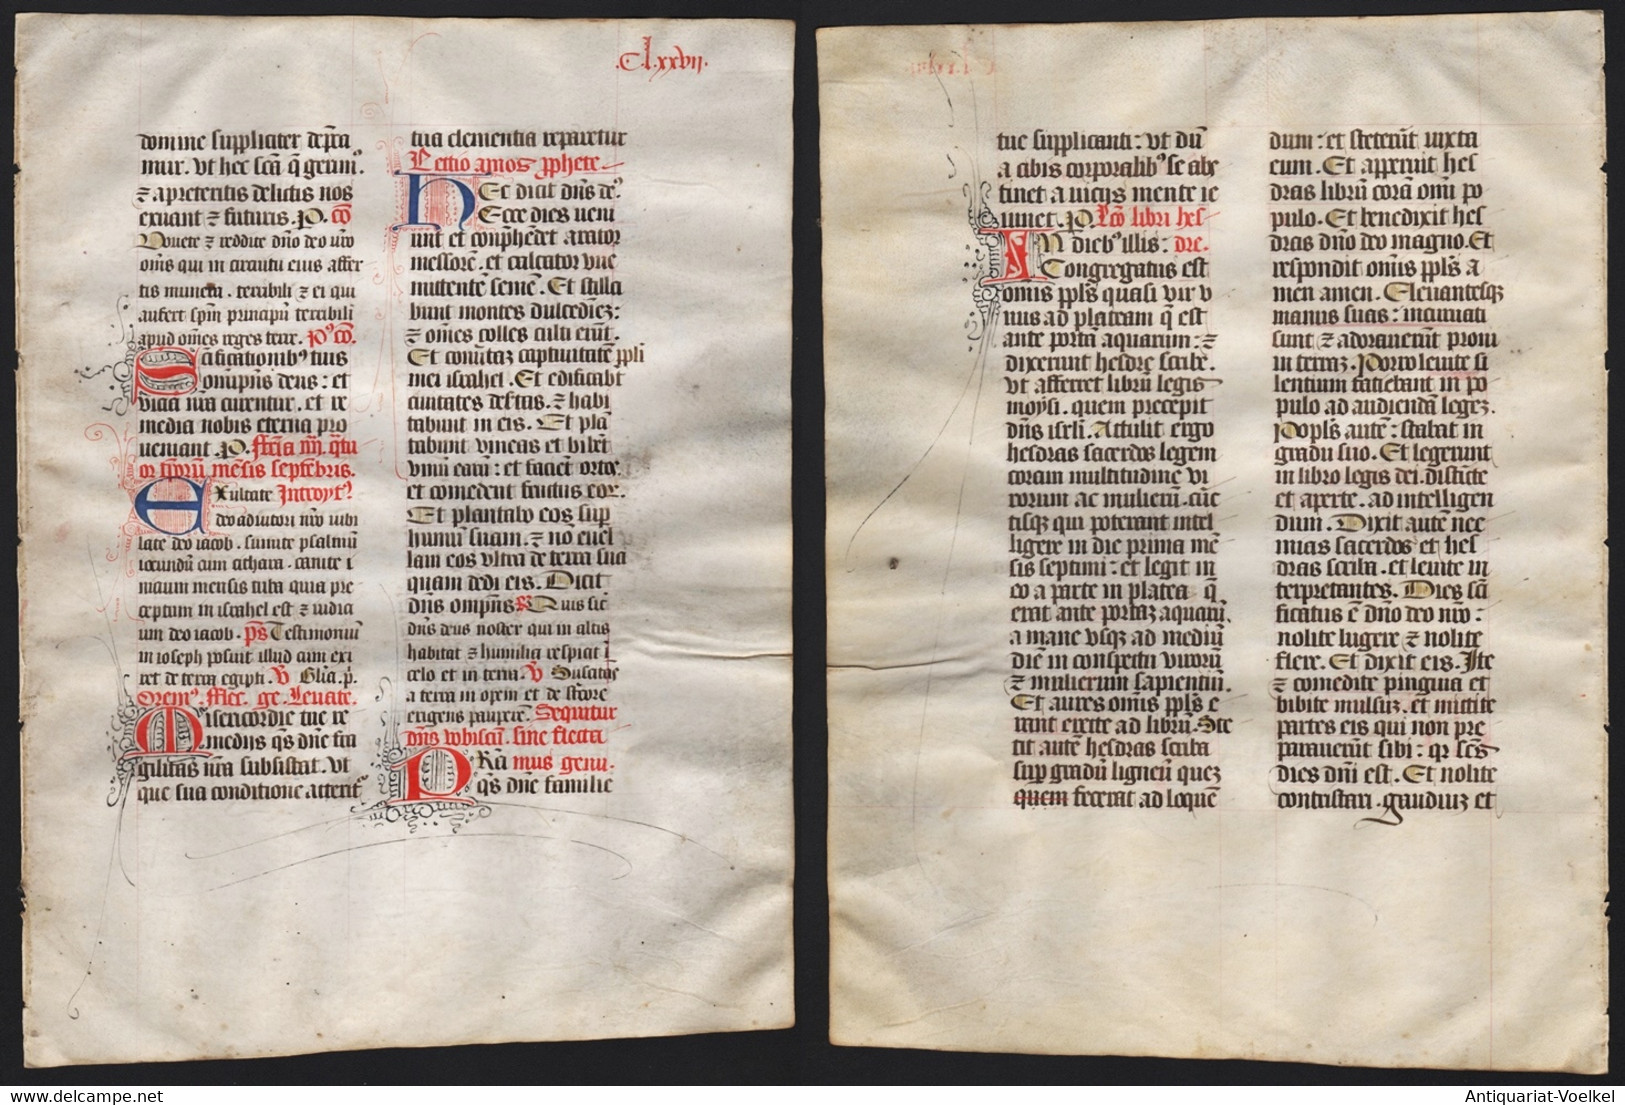 .C.l.xxvii.
domine suppliciter dep̄ca
mur. vt hec sc̄a q̄ gerim᷒.
⁊ a preteritis delictis nos
exuant ⁊ futuris. P. cō
Vouete ⁊ reddite dn̄o deo vr̄o
om̄s qui in circuitu eius affer
tis munera. terribili ⁊ ei qui
aufert sp̄m principū terribili
apud om̄es reges terre. P᷒ cō.
Sc̄ificationib᷒ tuis
om̄ip̄ns deus : et
vicia nr̄a curentur. et re
media nobis eterna pro
ueniant. P. Fēia iiij. q̄tu
or tp̄orū mēsis septēbris.
Exultate Introyt᷒
deo adiutori nr̄o iubi
late deo iacob. sumite psalmū
iocundū cum cithara. canite i
nicium mensis tuba quia pre
ceptum in israhel est ⁊ iudici
um deo iacob. ps̄ Testimonium
in ioseph posuit illud cum exi
ret de terra egipti. V Gl̄ia p̄.
Orem᷒. Flec. ge. Leuate.
Misericordie tue re
medijs q̄s dn̄e fra
gilitas nr̄a subsistat. vt
que sua conditione atterit᷑
tua clementia reparetur
Lectio amos p̄phete
Hec dicit dn̄s de᷒.
Ecce dies ueni
unt et conp̄hēdet arator
messorē. et calcator vue
mittentē semē. Et stilla
bunt montes dulcedinē :
⁊ om̄es colles culti erūt.
Et conūtā captiuitatē pp̄li
mei israhel. Et edificabt
ciuitates dēstas. ⁊ habi
tabunt in eis. Et plā
tabunt vineas et bibēt
vinū earū : et faciēt ortos
et comedent fructus eoꝝ.
Et plantabo eos sup
humū suam. ⁊ nō euel
lam eos vltra de terra sua
quam dedi eis. Dicit
dn̄s omp̄ns R Quis sic̄
dn̄s deus noster qui in altis
habitat ⁊ humilia respicit ī
celo et in terra. V Suscitās
a terra inopem et de st̄core
erigens pauperē. Sequitur
dn̄s vobiscū. sine flecta
Prā mus genu.
q̄s dn̄e familie
tue supplicanti : vt dū
a cibis corporalib᷒ se abs
tinet a vicijs mente ie
iunet. P. Lcō libri hes
In dieb᷒ illis : dre.
Congregatus est
om̄is pp̄ls quasi vir v
nus ad plateam q̄ est
ante portā aquarum : ⁊
dixerunt hesdre scribe
vt afferret librū legis
moysi. quem precepit
dn̄s isrl̄i. Attulit ergo
hesdras sacerdos legem
coram multitudine vi
rorum ac mulierū. cūc
tisq̄ qui poterant intel
ligere in die prima mē
sis septimi : et legit in
eo aparte in platea q̄
erat ante portā aquarū.
a mane vsq̄ ad mediū
diē in conspectu virorū
⁊ mulierum sapientiū.
Et aures om̄is pp̄ls e
rant erecte ad librū. Ste
tit autē hesdras scriba
sup gradū ligneū quem
quem fecerat ad loquē
dum : et steterūt iuxta
eum. Et apperuit hes
dras librū corā om̄i po
pulo. Et benedixit hes
dras dn̄o deo magno. Et
respondit om̄is pp̄ls a
men amen. Eleuantesq̄
manus suas : incuruati
sunt ⁊ adorauerūt proni
in terrā. Porro leuite si
lentium faciebant in po
pulo ad audiendā legē.
Pop̄ls autē : stabat in
gradu suo. Et legerunt
in libro legis dei. distīcte
et aperte. ad intelligen
dum. Dixit autē nee
mias sacerdos et hes
dras scriba. et leuite in
terpretantes. Dies sc̄i
ficatus ē dn̄o deo nr̄o :
nolite lugere ⁊ nolite
flere. Et dixit eis. Ite
⁊ comedite pinguia et
bibite mulsū. et mittite
partes eis qui non pre
parauerūt sibi : qr̄ sc̄us
dies dn̄i est. Et nolite
contristari. gaudiū et
Antiquariat-Voelkel